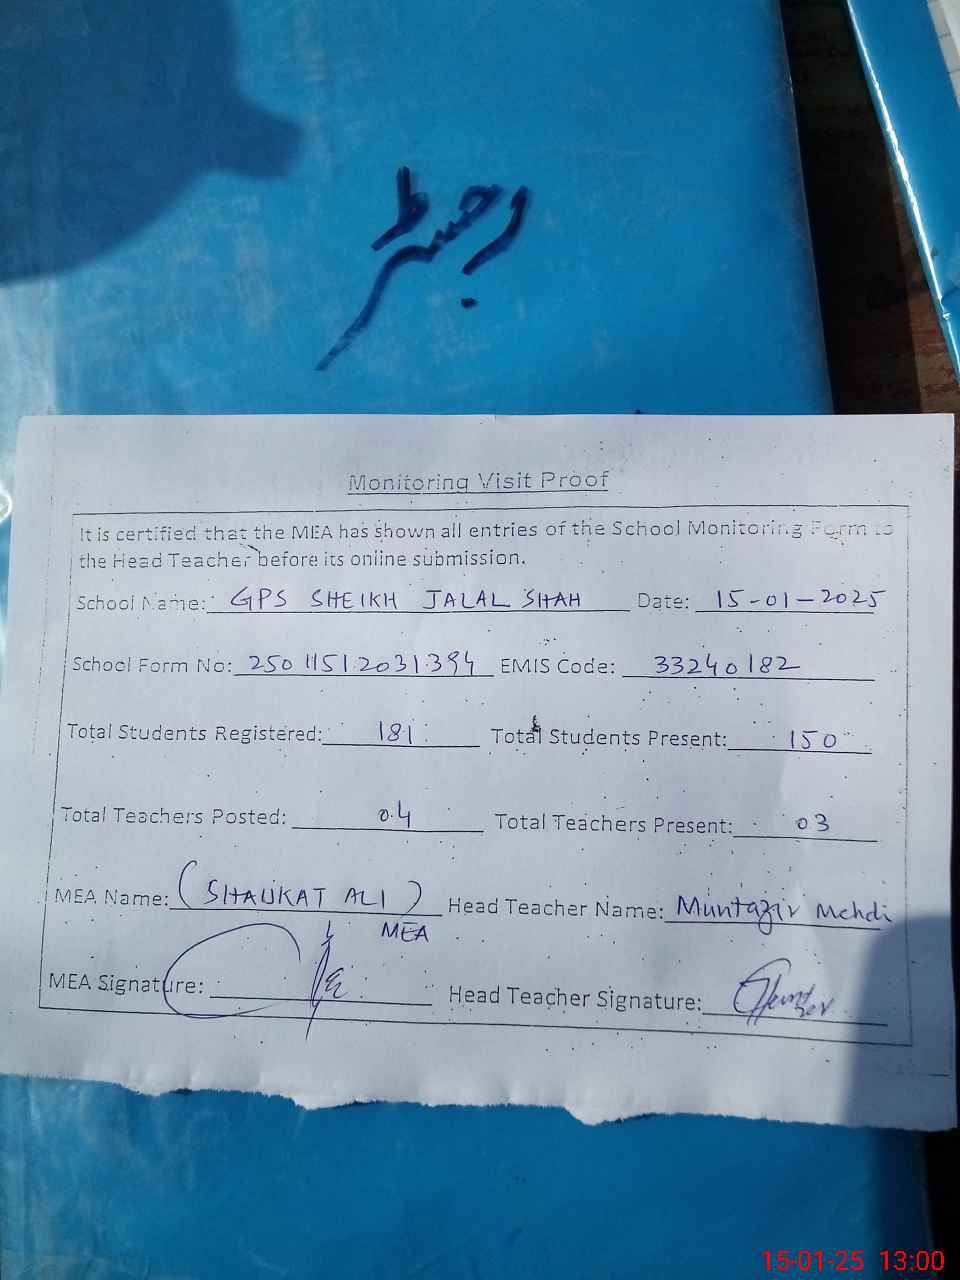 رجسٹر
Monitoring Visit Proof
It is certified that the MEA has shown all entries of the School Monitoring Form to
the Head Teacher before its online submission.
School Name: GPS SHEIKH JALAL SHAH Date: 15-01-2025
School Form No: 25011512031394 EMIS Code: 33240182
Total Students Registered: 181 Total Students Present: 150
Total Teachers Posted: 04 Total Teachers Present: 03
MEA Name: (SHAUKAT ALI) Head Teacher Name: Muntazir Mehdi
MEA
MEA Signature: Head Teacher Signature:
15-01-25 13:00